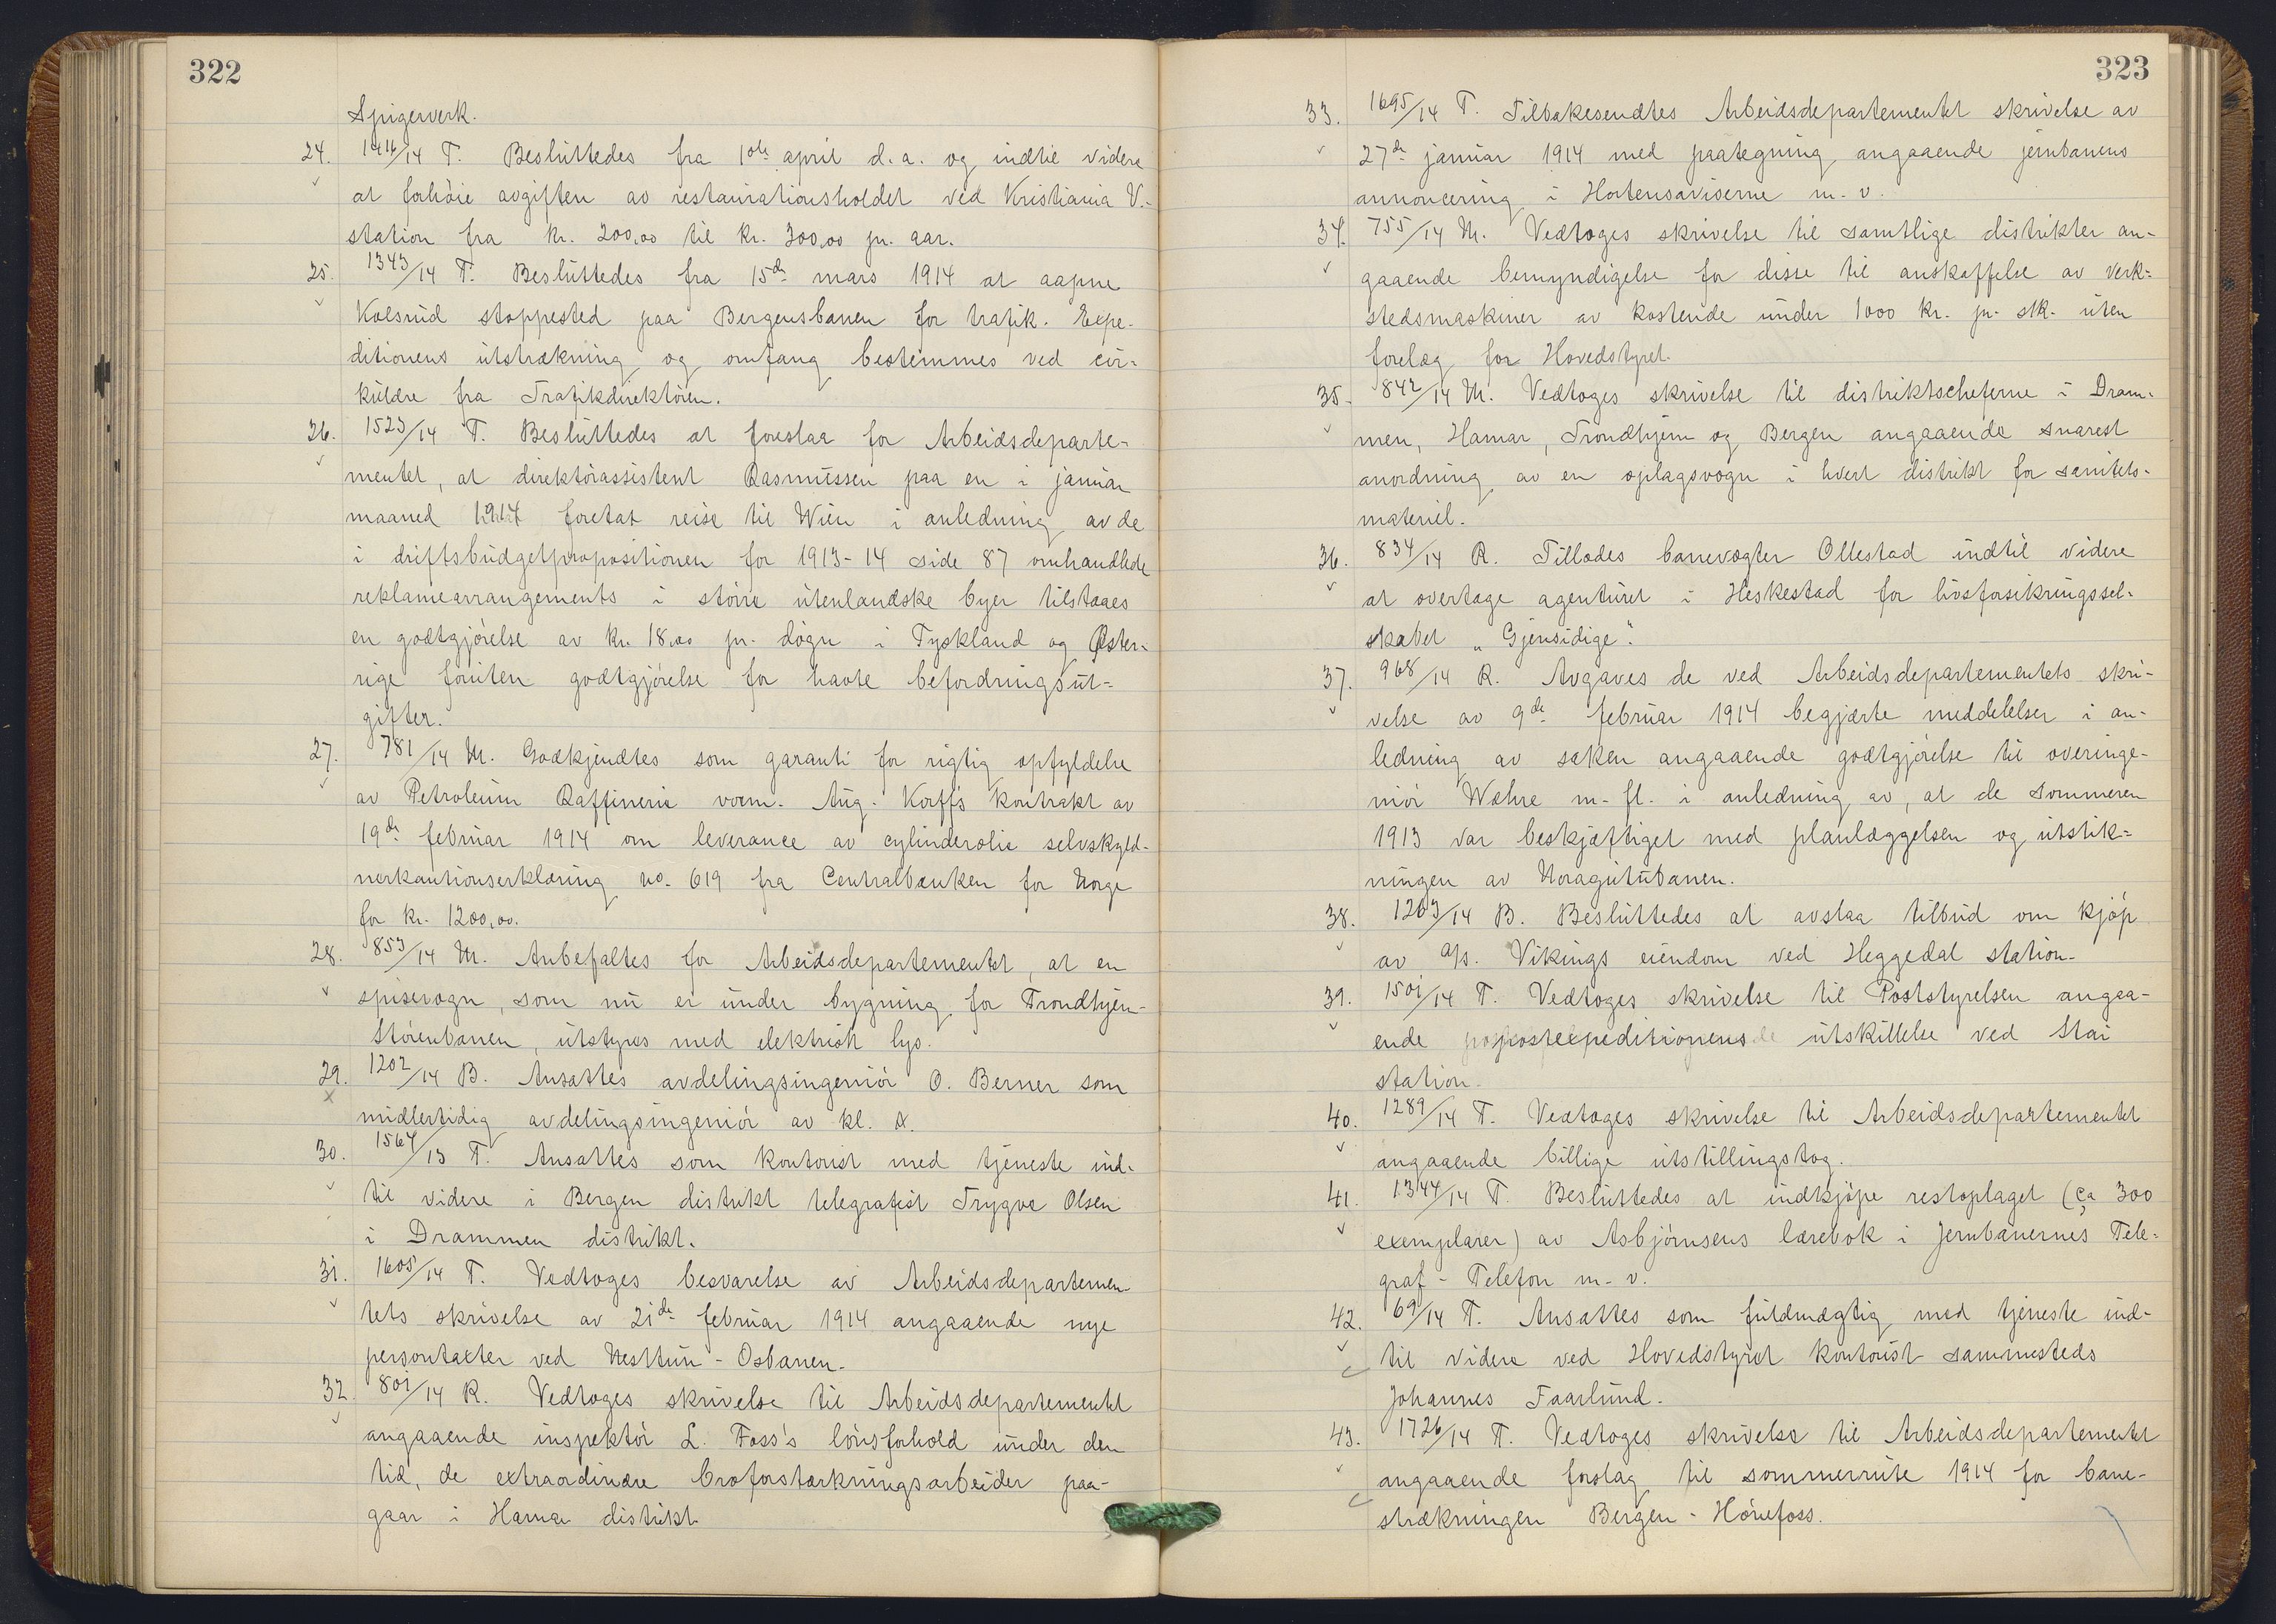 322
Spigerverk.
24. 1416/14 T. Besluttedes fra 1ste april d.a. og indtil videre
at forhöie avgiften av restaurationsholdet ved Kristiania V.-
station fra kr. 200,00 til kr. 300,00 pr. aar.
25. 1343/14 T. Besluttedes fra 15de mars 1914 at aapne
Kolsrud stoppested paa Bergensbanen for trafik. Expe-
ditionens utstrækning og omfang bestemmes ved cir-
kulære fra Trafikdirektören.
26. 1523/14 T. Besluttedes at foreslaa for Arbeidsdeparte-
mentet, at direktörassistent Rasmussen paa en i januar
maaned 1914 foretat reise til Wien i anledning av de
i driftsbudgetpropositionen for 1913-14 side 87 omhandlede
reklamearrangements i större utenlandske byer tilstaaes
en godtgjörelse av kr. 18,00 pr. dögn i Tyskland og Öster-
rige foruten godtgjörelse for havte befordringsut-
gifter.
27. 781/14 M. Godkjendtes som garanti for rigtig opfyldelse
av Petroleum Raffinerie vorm. Aug. Korff's kontrakt av
19de februar 1914 om leverance av cylinderolie selvskyld-
nerkautionserklæring no. 619 fra Centralbanken for Norge
for kr. 1200,00.
28. 853/14 M. Anbefaltes for Arbeidsdepartementet, at en
spisevogn, som nu er under bygning for Trondhjem-
Störenbanen, utstyres med elektrisk lys.
29. 1202/14 B. Ansattes avdelingsingeniör O. Berner som
midlertidig avdelingsingeniör av kl. A.
30. 1564/13 T. Ansattes som kontorist med tjeneste ind-
til videre i Bergen distrikt telegrafist Trygve Olsen
i Drammen distrikt.
31. 1605/14 T. Vedtoges besvarelse av Arbeidsdepartemen-
tets skrivelse av 21de februar 1914 angaaende nye
persontakter ved Nesttun-Osbanen.
32. 801/14 R. Vedtoges skrivelse til Arbeidsdepartementet
angaaende inspektör L. Foss's lönsforhold under den
tid, de extraordinære broforstærkningsarbeider paa-
gaar i Hamar distrikt.
323
33. 1695/14 T. Tilbakesendtes Arbeidsdepartementet skrivelse av
27de januar 1914 med paategning angaaende jernbanens
annoncering i Hortensaviserne m.v.
34. 755/14 M. Vedtoges skrivelse til samtlige distrikter an-
gaaende bemyndigelse for disse til anskaffelse av verk-
stedsmaskiner av kostende under 1000 kr. pr. stk. uten
forelæg for Hovedstyret.
35. 842/14 M. Vedtoges skrivelse til distriktscheferne i Dram-
men, Hamar, Trondhjem og Bergen angaaende snarest
anordning av en oplagsvogn i hvert distrikt for sanitets-
materiel.
36. 834/14 R. Tillodes banevogter Ollestad indtil videre
at overtage agenturet i Heskestad for livsforsikringssel-
skabet „Gjensidige".
37. 968/14 R. Avgaves de ved Arbeidsdepartementets skri-
velse av 9de februar 1914 begjærte meddelelser i an-
ledning av saken angaaende godtgjörelse til overinge-
niör Wæhre m.fl. i anledning av, at de sommeren
1913 var beskjæftiget med planlæggelsen og utstik-
ningen av Noragutubanen.
38. 1263/14 B. Besluttedes at avslaa tilbud om kjöp
av A/S. Vikings eiendom ved Heggedal station.
39. 1501/14 T. Vedtoges skrivelse til Poststyrelsen angaa-
ende postexpeditionens utskillelse ved Stai
station.
40. 1289/14 T. Vedtoges skrivelse til Arbeidsdepartementet
angaaende billige utstillingstog.
41. 1344/14 T. Besluttedes at indkjöpe restoplaget (ca 300
exemplarer) av Asbjörnsens lærebok i Jernbanernes Tele-
graf-Telefon m.v.
42. 69/14 T. Ansattes som fuldmægtig med tjeneste ind-
til videre ved Hovedstyret kontorist sammesteds
Johannes Faarlund.
43. 1726/14 T. Vedtoges skrivelse til Arbeidsdepartementet
angaaende forslag til sommerrute 1914 for bane-
strækningen Bergen-Hönefoss.